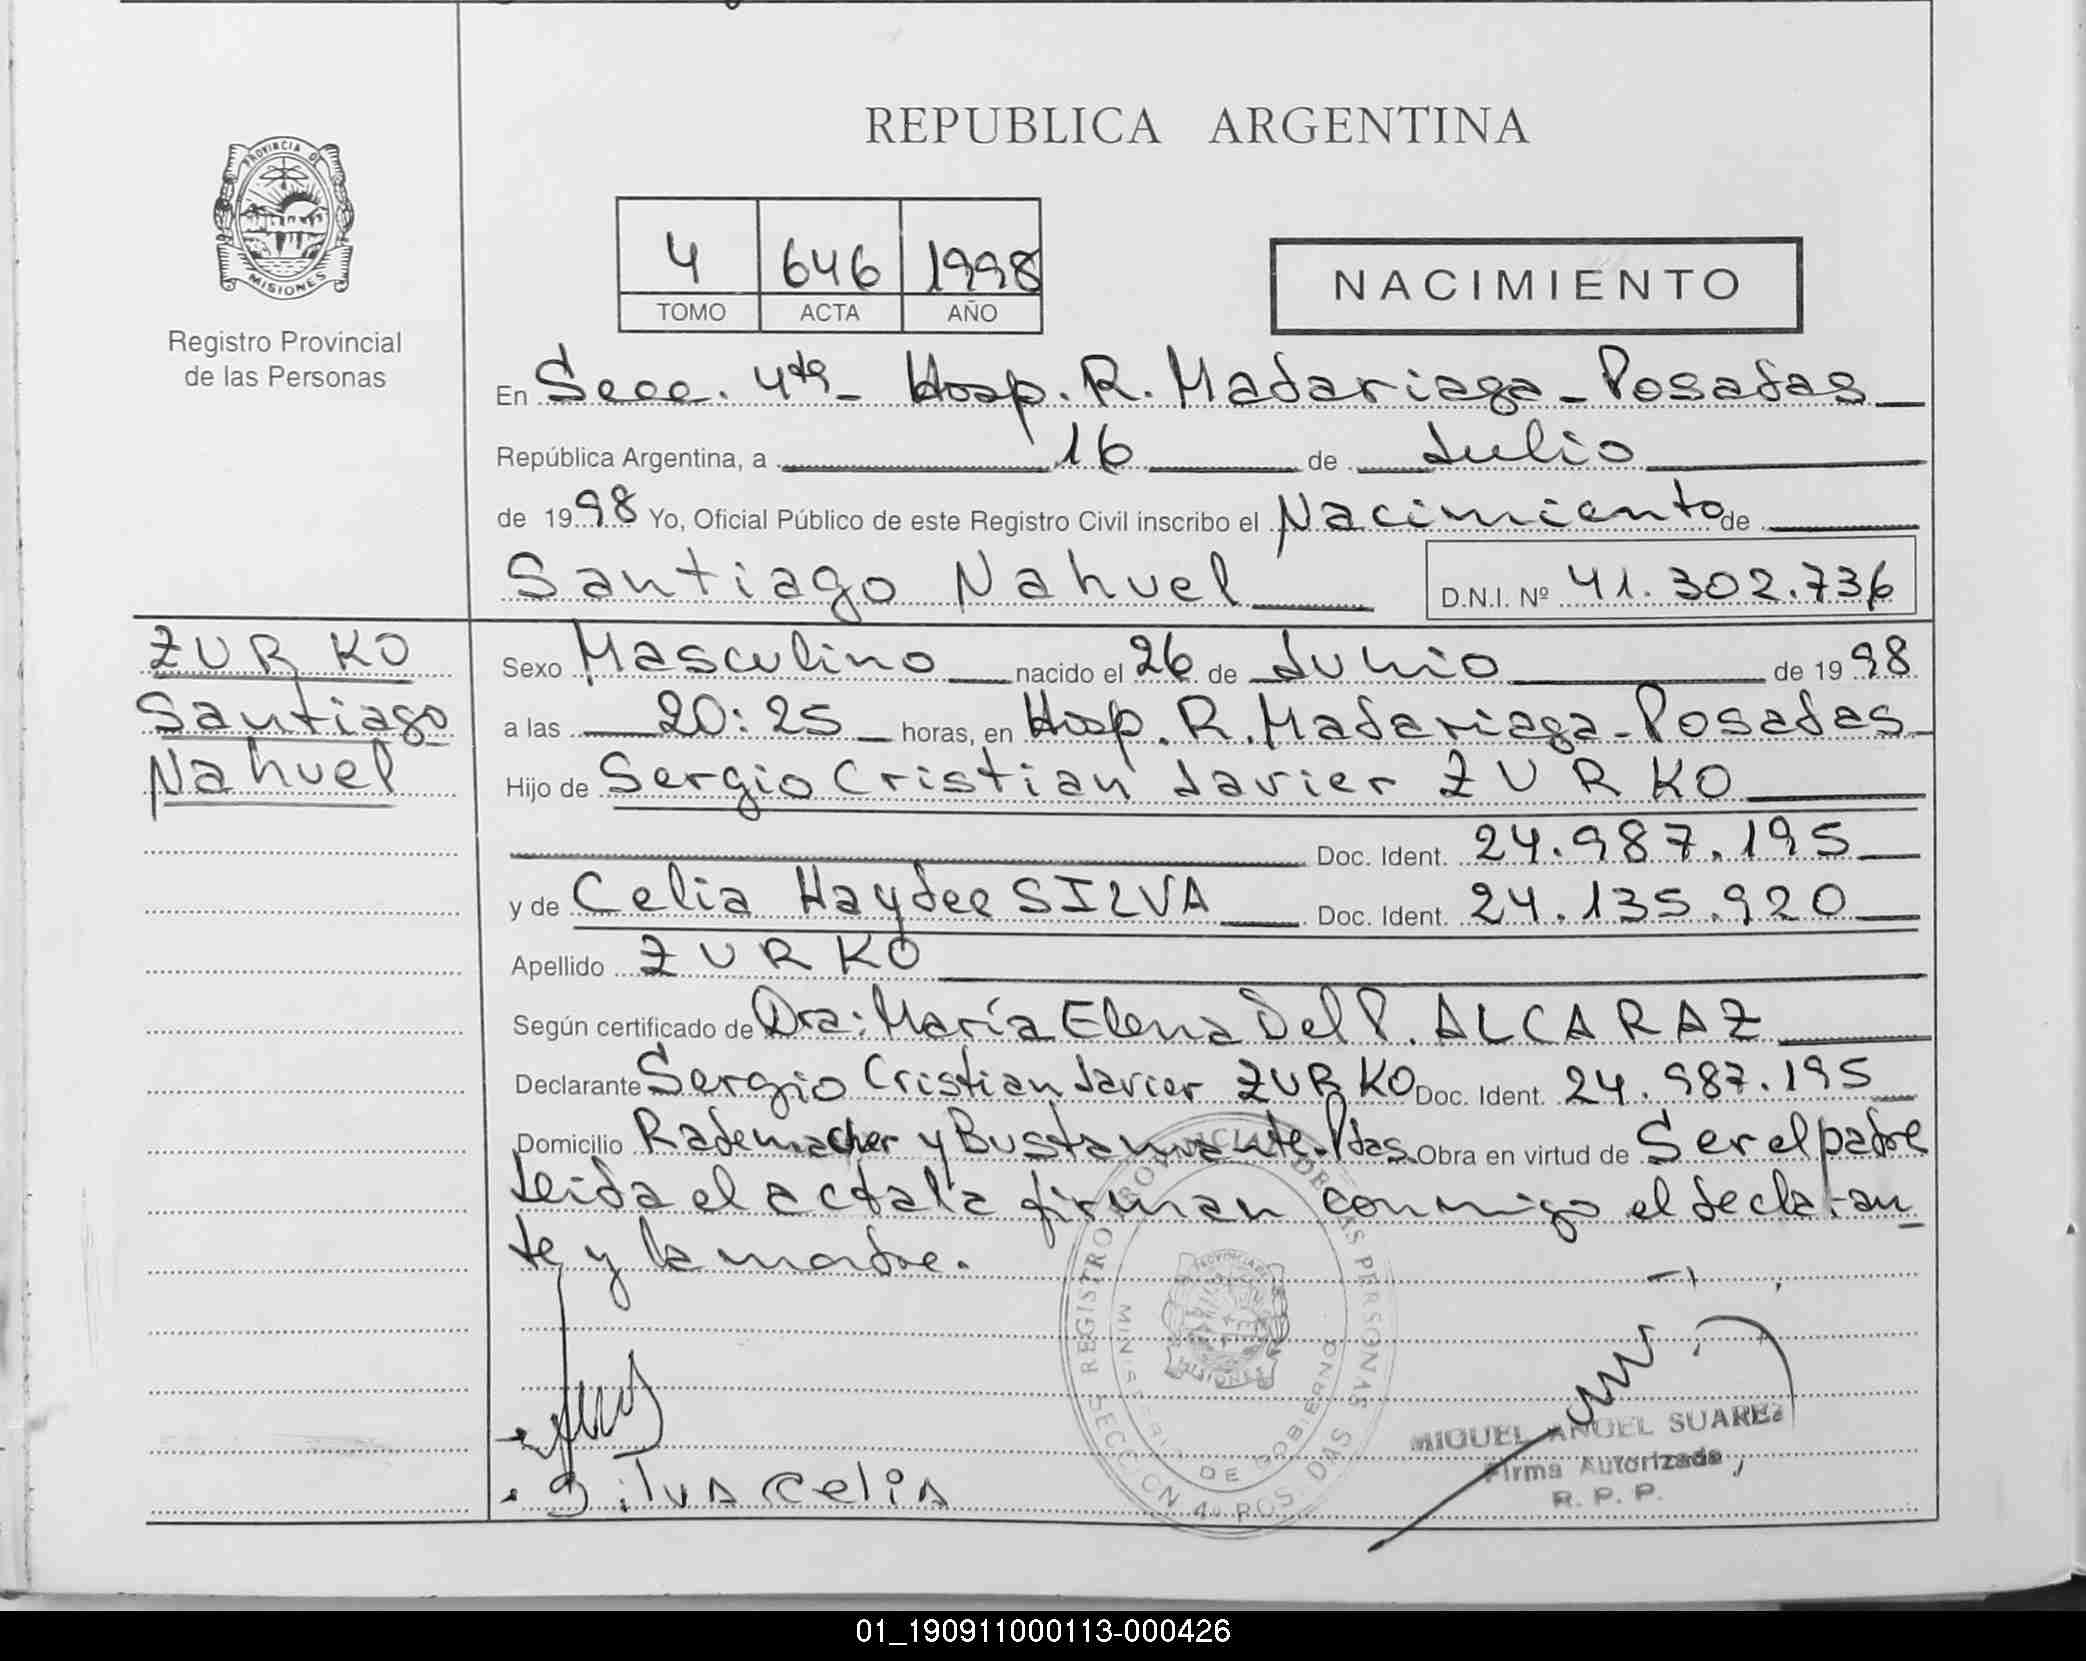 REPUBLICA ARGENTINA
PROVINCIA DE
MISIONES
Registro Provincial
de las Personas
4 646 1998
TOMO ACTA AÑO
NACIMIENTO
En Secc. 4ta - Hosp. R. Madariaga - Posadas
República Argentina, a 16 de Julio
de 1998 Yo, Oficial Público de este Registro Civil inscribo el Nacimiento de
Santiago Nahuel D.N.I. Nº 41.302.736
ZURKO
Santiago
Nahuel
Sexo Masculino nacido el 26 de Junio de 1998
a las 20:25 horas, en Hosp. R. Madariaga - Posadas
Hijo de Sergio Cristian Javier ZURKO
Doc. Ident. 24.987.195
y de Celia Haydee SILVA Doc. Ident. 24.135.920
Apellido ZURKO
Según certificado de Dra: María Elena Del P. ALCARAZ
Declarante Sergio Cristian Javier ZURKO Doc. Ident. 24.987.195
Domicilio Rademacher y Bustamante - Pdas. Obra en virtud de Ser el padre
Leida el acta la firman conmigo el declaran
te y la madre.
REGISTRO PROVINCIAL DE LAS PERSONAS
MINISTERIO DE GOBIERNO
PROVINCIA DE
MISIONES
SECCION 4ª POSADAS
Silva Celia
MIGUEL ANGEL SUAREZ
Firma Autorizada
R. P. P.
01_190911000113-000426